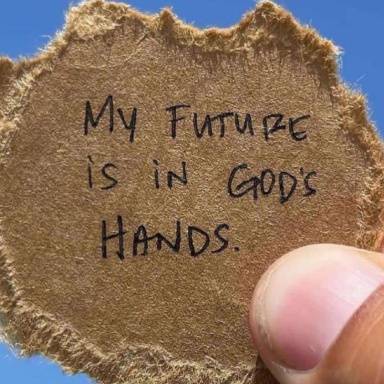 MY FUTURE
iS iN GOD'S
HANDS.